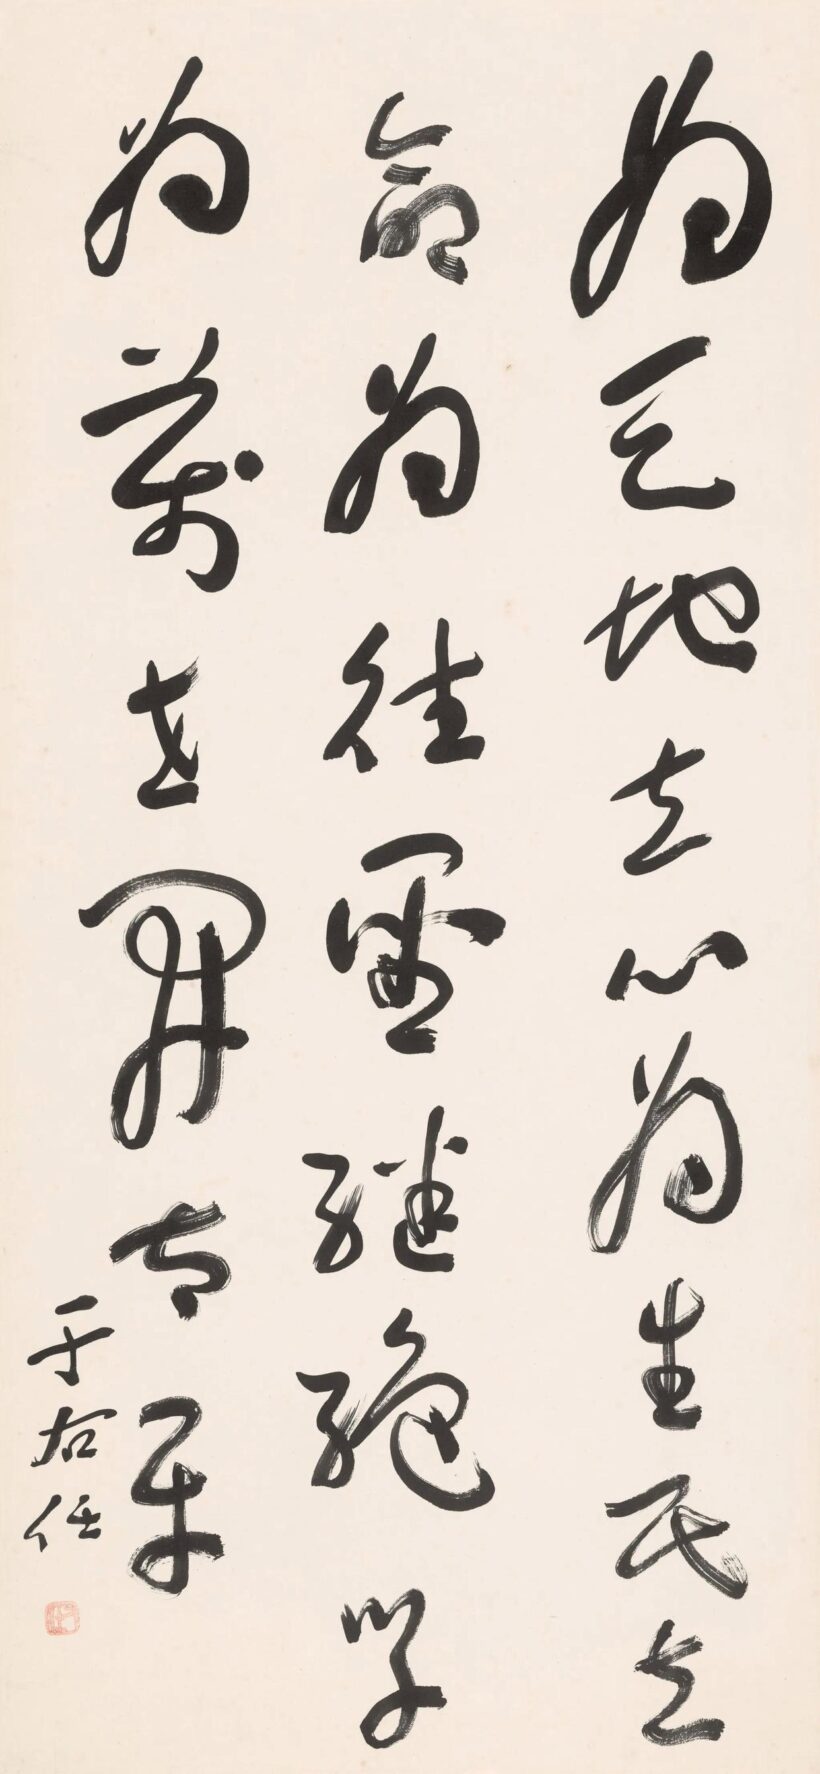 為天地立心為生民立
命為往聖繼絕學
為萬世開太平
于右任